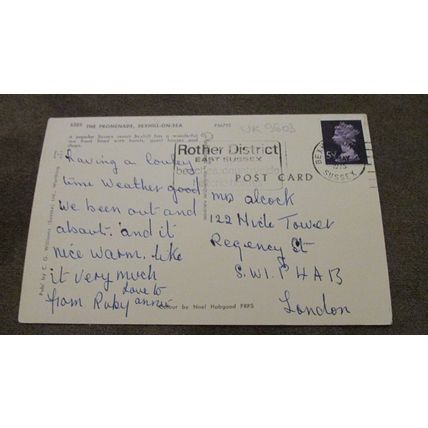 6389 THE PROMENADE, BEXHILL-ON-SEA
UK 9603
A popular Sussex resort Bexhill has a wonderful
sea front lined with hotels, guest houses and
Having a loveley
time weather good
we been out and
about. and it
nice warm. like
it very much
love to
from Ruby annie
Rother District
EAST SUSSEX
POST CARD
BEX
SUSSEX
Mrs alcock
122 Tower
Regency St
S.W.1.P 4 A B
London
Publ by C. G. Williams
Colour by Noel Habgood FRPS